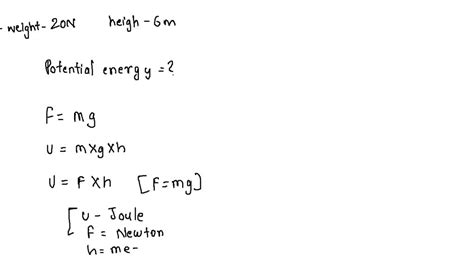 - weight - 20N heigh - 6m
Potential energy = ?
F = mg
U = m×g×h
U = F×h [F=mg]
[ U - Joule
F = Newton
h = me-